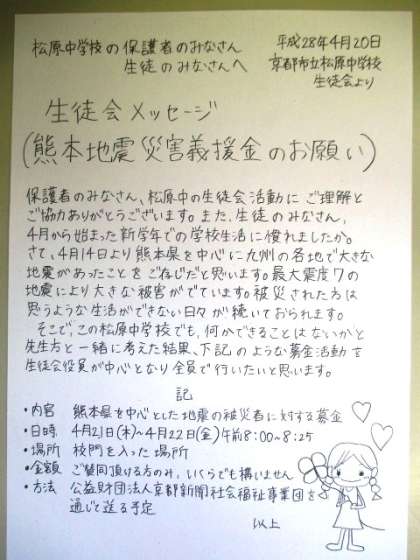 松原中学校の保護者のみなさん
生徒のみなさんへ
平成28年4月20日
京都市立松原中学校
生徒会より
生徒会メッセージ
(熊本地震災害義援金のお願い)
保護者のみなさん、松原中の生徒会活動にご理解と
ご協力ありがとうございます。また、生徒のみなさん、
4月から始まった新学年での学校生活に慣れましたか。
さて、4月14日より熊本県を中心に九州の各地で大きな
地震があったことをご存じだと思います。最大震度7の
地震により大きな被害がでています。被災された方は
思うような生活ができない日々が続いておられます。
そこで、この松原中学校でも、何かできることはないかと
先生方と一緒に考えた結果、下記のような募金活動を
生徒会役員が中心となり全員で行いたいと思います。
記
・内容 熊本県を中心とした地震の被災者に対する募金
・日時 4月21日(木)~4月22日(金)午前8:00~8:25
・場所 校門を入った場所
・金額 ご賛同頂ける方のみ、いくらでも構いません
・方法 公益財団法人京都新聞社会福祉事業団を
通じて送る予定
以上